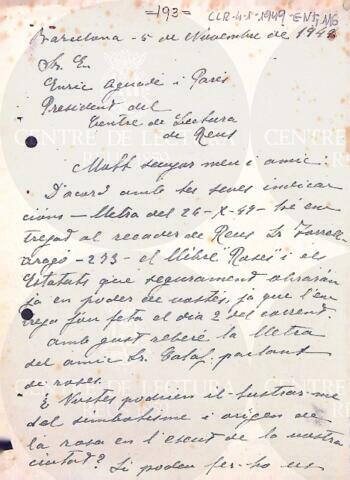 -193-
CLR-4-1-1949-ENT,N6
Barcelona - 5 de Novembre de 1949
Sr. En
Enric Aguadé i Parés
President del
Centre de Lectura
de Reus
Molt senyor meu i amic:
D'acord amb les seves indica-
cions - lletra del 24-X-49 - hé en-
tregat al recader de Reus Sr
Aragó - 273 - el llibre "Roses i els
que segurament obrarán
ja en poder de vostès, ja que l'en-
trega fou feta el dia 2 del corrent.
Amb gust rebaré la lletra
del amic Sr. parlant
de roses.
¿ Vostès podrien il-lustrar-me
del simbolisme i origen de
la rosa en l'escut de la nostra
ciutat? Si poden fer-ho els
CENTRE DE LECTURA
REUS